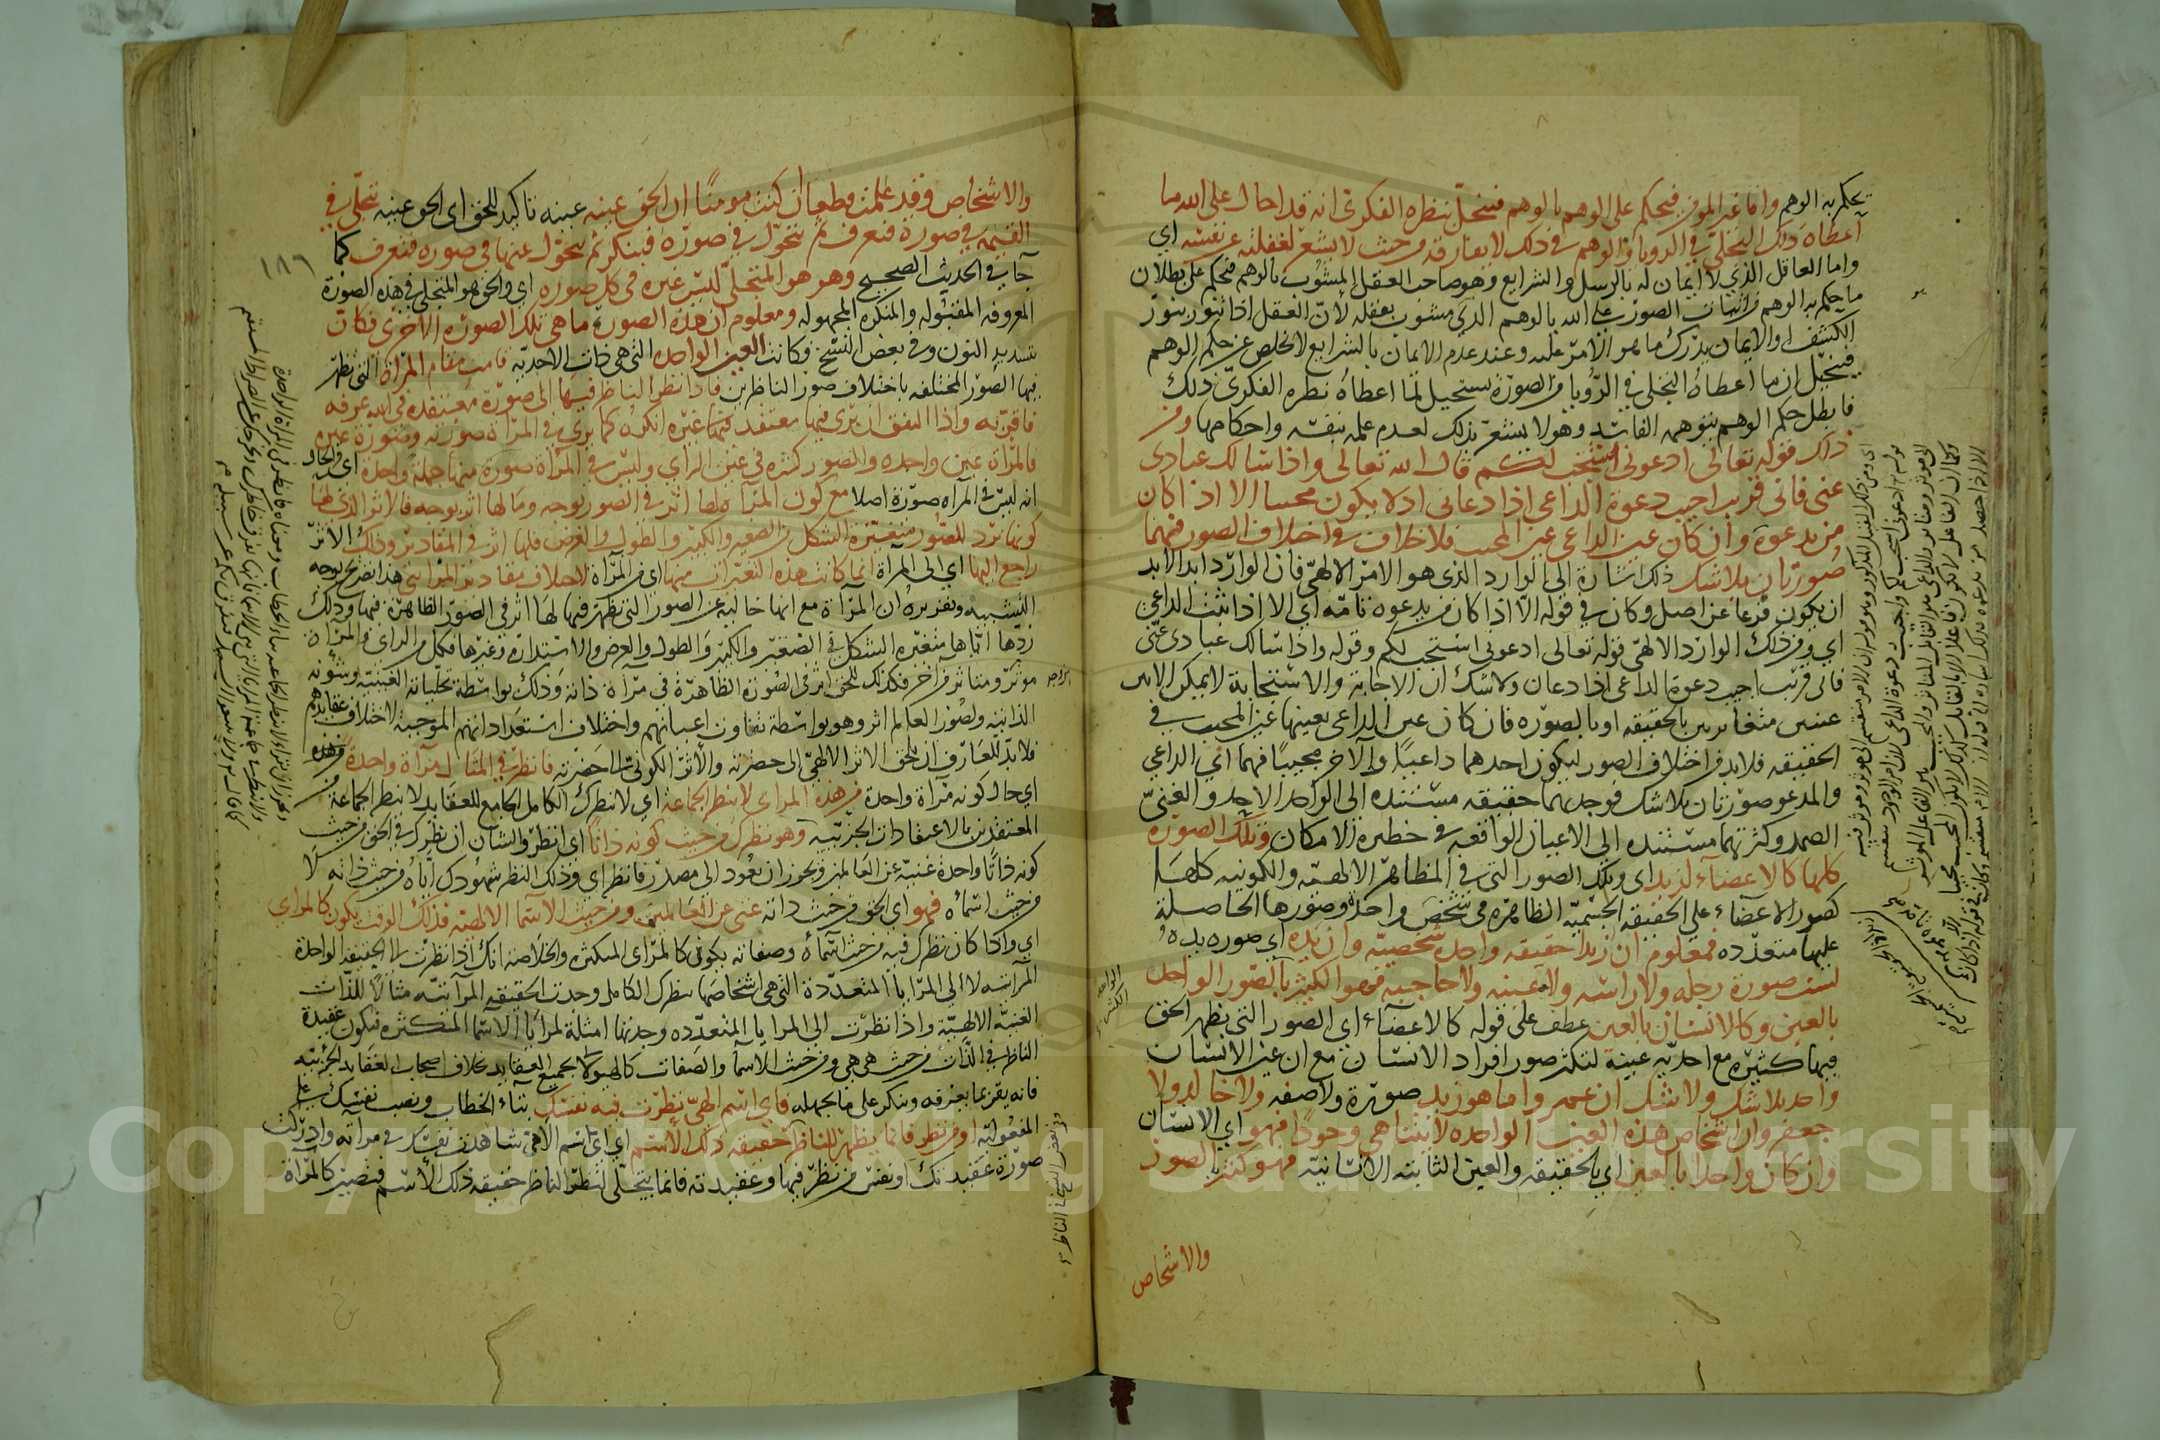 يحكم به الوهم واما غير المؤمن فيحكم على الوهم بالوهم فيتخيل بنظره الفكري انه قد احال على الله ما
اعطاه ذلك التجلي في الرويا والوهم في ذلك لا يفارقه من حيث لا يشعر لغفلته عن نفسه اي
واما العاقل الذي لا ايمان له بالرسل والشرايع وهو صاحب العقل المشوب بالوهم فيحكم على بطلان
ما يحكم به الوهم من اثبات الصورة على الله بالوهم الذي مشوب بعقله لان العقل اذا تنور بنور
الكشف او الايمان يدرك ما هو الامر عليه وعند عدم الايمان بالشرايع لا يخلص عن حكم الوهم
فيتخيل ان ما اعطاه التجلي في الرويا من الصورة يستحيل لما اعطاه نظره الفكري ذلك
فابطل حكم الوهم بتوهمه الفاسد وهو لا يشعر بذلك لعدم علمه بنفسه واحكامها ومن
ذلك قوله تعالى ادعوني استجب لكم قال الله تعالى واذا سالك عبادي
عني فاني قريب اجيب دعوة الداعي اذا دعاني اذ لا يكون مجيبا الا اذا كان
من يدعوه وان كان عين الداعي عين المجيب فلا خلاف في اختلاف الصور فهما
صورتان بلا شك ذلك اشارة الى الوارد الذي هو الامر الالهي فان الوارد ابدا لابد
ان يكون فرعا عن اصل وكان في قوله الا اذا كان من يدعوه تامة اي الا اذا ثبت الداعي
اي ومن ذلك الوارد الالهي قوله تعالى ادعوني استجب لكم وقوله واذا سالك عبادي عني
فاني قريب اجيب دعوة الداعي اذا دعان ولا شك ان الاجابة والاستجابة لا يمكن الا بين
عينين متغايرين بالحقيقه او بالصوره فان كان عين الداعي بعينها عين المجيب في
الحقيقه فلابد من اختلاف الصور ليكون احدهما داعيا والآخر مجيبا فهما اي الداعي
والمدعو صورتان بلا شك فوجدتهما حقيقه مستنده الى الواحد الاحد والغني
الصمد وكثرتهما مستنده الى الاعيان الواقعه في خطيرة الامكان وتلك الصورة
كلها كالاعضاء لزيد اي وتلك الصور التي في المظاهر الالهيه والكونيه كلها
كصور الاعضاء على الحقيقه الجسمية الظاهرة في شخص واحد وصورها الحاصلة
عليها متعدده فمعلوم ان زيدا حقيقه واحده شخصية وان يده اي صوره يده
ليست صورة رجله ولا راسه ولا عينه ولا حاجبه فهو الكثير بالصور الواحد
بالعين وكالانسان بالعين عطف على قوله كالاعضاء اي الصور التي يظهر الحق
فيها كثيرة مع احدية عينه لتكثر صور افراد الانسان مع ان عين الانسان
واحد بلا شك ولا شك ان عمروا ما هو زيد صورة ولا صفه ولا خالد ولا
جعفر وان اشخاص هذه العين الواحده لا تتناهى وجودا فهو اي الانسان
وان كان واحدا بالعين اي بالحقيقه والعين الثابته الانسانية فهو كثير بالصور
والاشخاص
والاشخاص وقد علمت قطعا ان كنت مومنا ان الحق عينه عينه تاكيد للحق اي الحق عينه يتجلى في
القيمه في صورة فتعرف ثم يتحول في صورة فينكر ثم يتحول عنها في صوره فتعرف كما
جا في الحديث الصحيح وهو هو المتجلي ليس غيره في كل صورة اي والحق هو المتجلي في هذه الصورة
المعروفه المقبوله والمنكره المجهوله ومعلوم ان هذه الصورة ما هي تلك الصوره الاخرى فكان
بتشديد النون وفي بعض النسخ فكانت العين الواحده التي هي ذات الاحديه قامت مقام المرآة التي تظهر
فيها الصور المختلفه باختلاف صور الناظرين فاذا نظر الناظر فيها الى صورة معتقده في الله عرفه
فاقر به واذا اتفق ان يرى فيها معتقد غيره انكره كما يرى في المرآة صورته وصورة غيره
فالمرآة عين واحده والصور كثيره في عين الرائي وليس في المرآة صورة منها جملة واحدة اي والحال
انه ليس في المرآه صورة اصلا مع كون المرآة لها اثر في الصور بوجه وما لها اثر بوجه فالاثر الذي لها
كونها ترد الصور متغيرة الشكل من الصغير والكبير والطول والعرض فلها اثر في المقادير وذلك الاثر
راجع اليها اي الى المرآة انما كانت هذه التغيرات منها اي من المرآة لاختلاف مقادير المرائي هذا تصريح بوجه
التشبيه وتقريره ان المرآة مع انها خاليه عن الصور التي تظهر فيها لها اثر في الصور الظاهرة فيها وذلك
ردها اياها متغيره الشكل في الصغير والكبير والطول والعرض والاستداره وغيرها فكل من الرائي والمرآة
موثر ومتاثر من آخر فكذلك للحق اثر في الصورة الظاهرة في مرآة ذاته وذلك بواسطة تجلياته الغيبية وشؤنه
الذاتيه ولصور العالم اثر وهو بواسطة تفاوت اعيانهم واختلاف استعداداتهم الموجبة لاختلاف عقايدهم
فلابد للعارف ان يلحق الاثر الالهي الى حضرته والاثر الكوني الى حضرته فانظر في المثال مرآة واحدة من هذه
اي حال كونه مرآة واحدة من هذه المرائي لا ينظر الجماعة اي لا تنظر الكامل الجامع للعقايد لا تنظر الجماعة
المعتقدين بالاعتقادات الجزئية وهو نظرك من حيث كونه ذاتا اي انظر والشان ان نظرك في الحق من حيث
كونه ذاتا واحدة غنية عن العالمين ويجوز ان يعود الى مصدر فانظر اي وذلك النظر شهودك اياه من حيث ذاته لا
من حيث اسمائه فهو اي الحق من حيث ذاته غني عن العالمين ومن حيث الاسما الالهية فذلك الوقت يكون كالمرائي
اي وكذا كان نظرك فيه من حيث اسمائه وصفاته يكون كالمرائي المتكثرة والخلاصه انك اذا نظرت الى الحقيقه الواحدة
المرآتيه لا الى المرايا المتعددة التي هي اشخاصها بنظرك الكامل وجدت الحقيقه المرآتيه مثالا للذات
الغنية الالهية واذا نظرت الى المرايا المتعدده وجدتها امثلة لمرايا الاسما المتكثره فيكون عقيدة
الناظر في الذات من حيث هي هي ومن حيث الاسما والصفات كالهيولى لجميع العقايد بخلاف اصحاب العقايد الجزئيه
فانه يقر بما يعرفه وينكر على ما يجهله فاي اسم الهي نظرت فيه نفسك بتاء الخطاب ونصب نفسك على
المفعوليه او من نظر فانما يظهر للناظر حقيقه ذلك الاسم اي اي اسم الاهي شاهدت نفسك في مرآته وادركت
صورة عقيدتك او نفس من نظر فيها وعقيدته فانما يتجلى لنظر الناظر حقيقه ذلك الاسم فيصير كالمرآة
١٨٦
وفي بعض النسخ الناظر